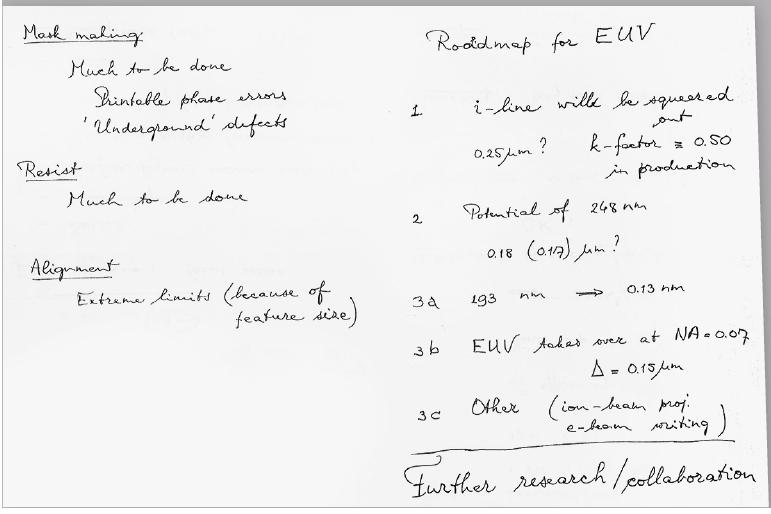 Mask making:
Much to be done
Printable phase errors
'Underground' defects
Resist
Much to be done
Alignment
Extreme limits (because of
feature size)
Roadmap for EUV
1 i-line will be squeezed
out
0.25 μm ? k-factor ≡ 0.50
in production
2 Potential of 248 nm
0.18 (0.17) μm ?
3a 193 nm ⇒ 0.13 nm
3b EUV takes over at NA = 0.07
Δ = 0.15 μm
3c Other (ion-beam proj.
e-beam writing)
Further research/collaboration